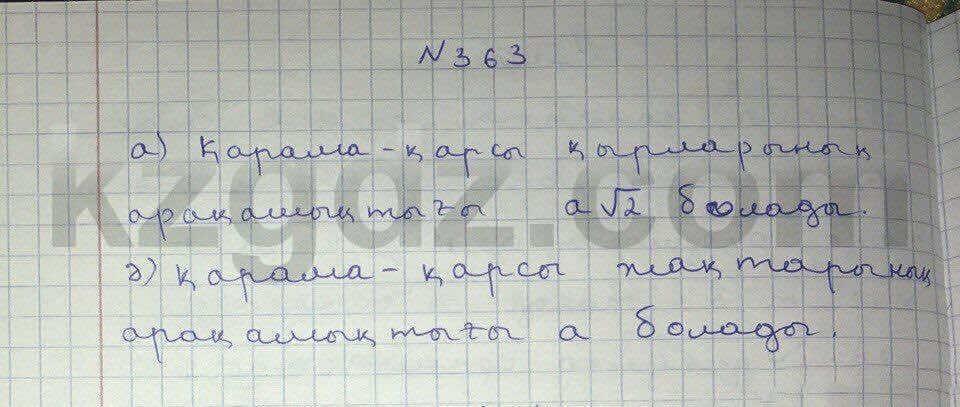 N363
а) Қарама-қарсы қырларының
арақашықтығы a√2 болады.
ә) қарама-қарсы жақтарының
арақашықтығы а болады.
kzgdz.com